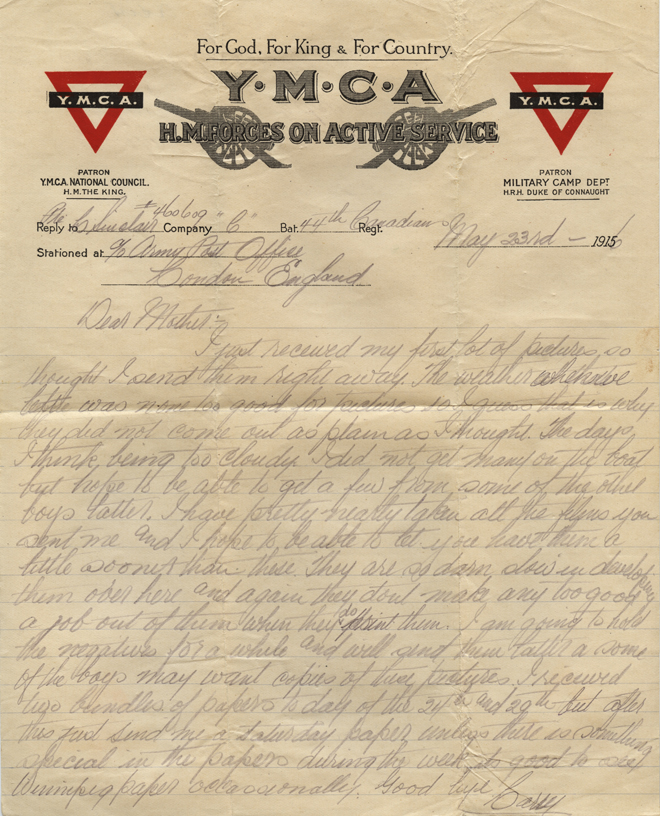 For God, For King & For Country.
Y·M·C·A
H.M. FORCES ON ACTIVE SERVICE
Y.M.C.A.
PATRON
Y.M.C.A. NATIONAL COUNCIL.
H.M. THE KING.
Y.M.C.A.
PATRON
MILITARY CAMP DEPT
H.R.H. DUKE OF CONNAUGHT
Reply to Pte L Sinclair # 460609 Company "C" Bat. 44th Canadian Regt. May 23rd – 1916
Stationed at c/o Army Post Office
London England
Dear Mother:-
I just received my first lot of pictures, so
thought I send them right away. The weather
was none too good for pictures so I guess that is why
they did not come out as plain as I thought. The days
I think, being too cloudy. I did not get many on the boat
but hope to be able to get a few from some of the other
boys latter. I have pretty nearly taken all the films you
sent me and I hope to be able to let you have them a
little sooner than these. They are so darn slow in developing
them over here and again they dont make any too good
a job out of them when they do print them. I am going to hold
the negatives for a while and will send them latter a some
of the boys may want copies of these pictures. I received
two bundles of papers to day of the 24th and 29th but after
this just send me a Saturday paper unless there is something
special in the papers during the week its good to see a
Winnipeg paper occassionally. Good bye